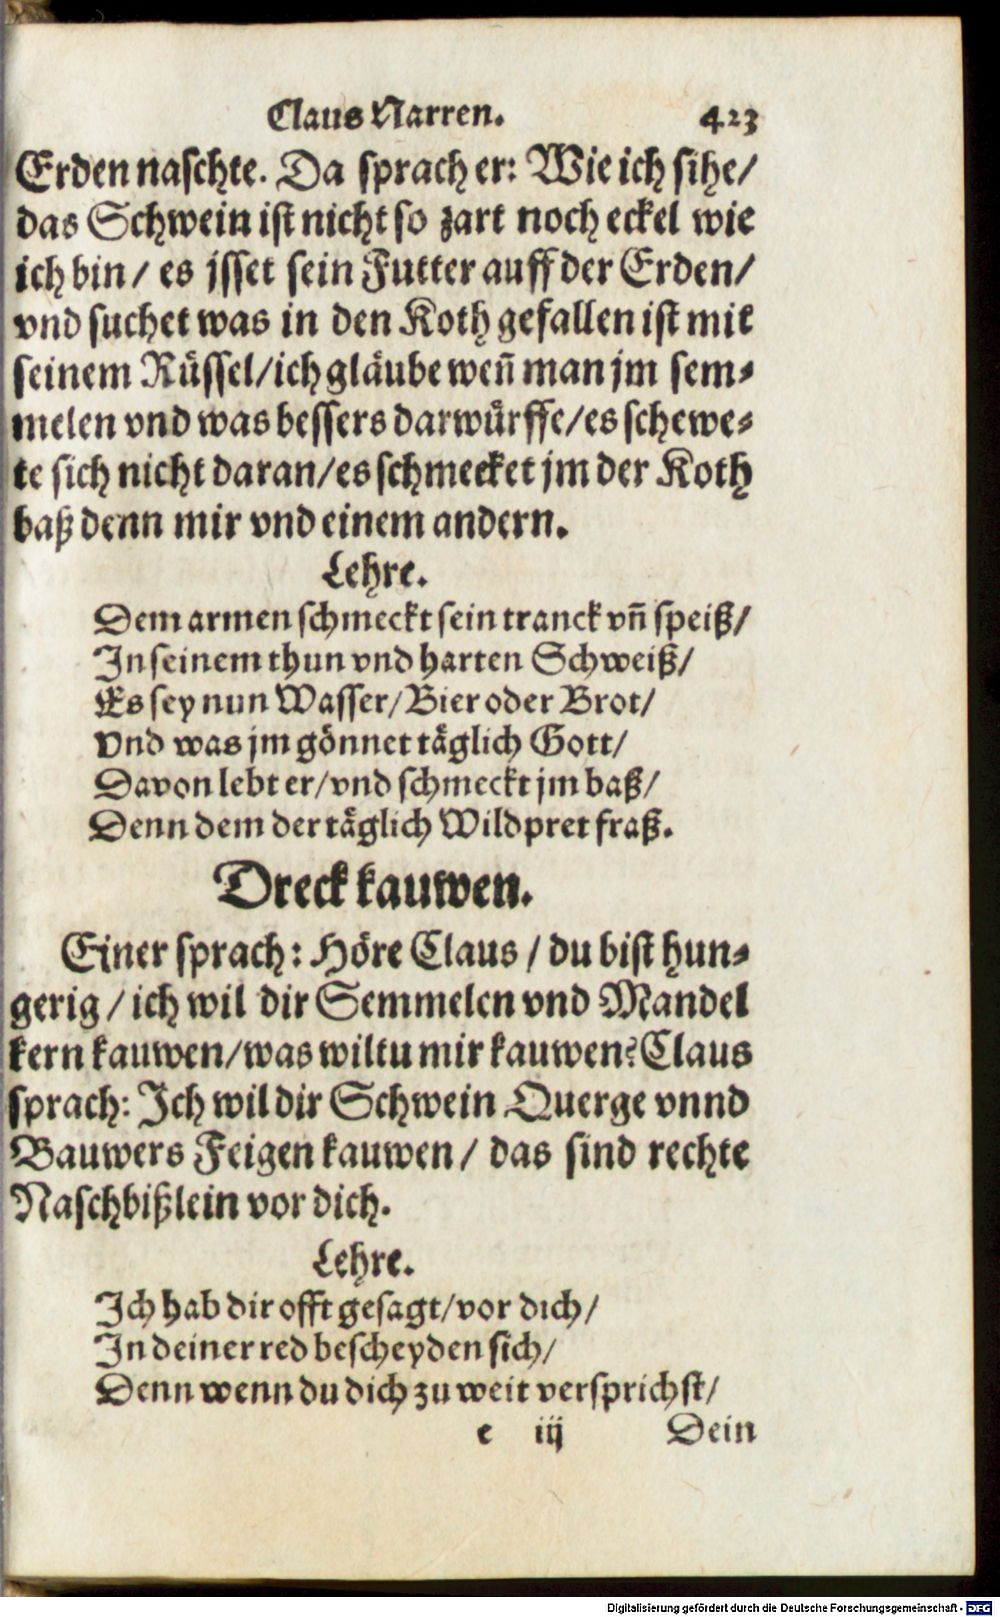 Claus Narren. 423
Erden naschte. Da sprach er: Wie ich sihe/
das Schwein ist nicht so zart noch eckel wie
ich bin/ es jsset sein Futter auff der Erden/
vnd suchet was in den Koth gefallen ist mit
seinem Rüssel/ich gläube weñ man jm sem-
melen vnd was bessers darwürffe/es schewe-
te sich nicht daran/es schmecket jm der Koth
baß denn mir vnd einem andern.
Lehre.
Dem armen schmeckt sein tranck vñ speiß/
In seinem thun vnd harten Schweiß/
Es sey nun Wasser/Bier oder Brot/
Vnd was jm gönnet täglich Gott/
Davon lebt er/vnd schmeckt jm baß/
Denn dem der täglich Wildpret fraß.
Dreck kauwen.
Einer sprach: Höre Claus/du bist hun-
gerig/ich wil dir Semmelen vnd Mandel
kern kauwen/was wiltu mir kauwen? Claus
sprach: Ich wil dir Schwein Querge vnnd
Bauwers Feigen kauwen/ das sind rechte
Naschbißlein vor dich.
Lehre.
Ich hab dir offt gesagt/vor dich/
In deiner red bescheyden sich/
Denn wenn du dich zu weit versprichst/
e iij Dein
Digitalisierung gefördert durch die Deutsche Forschungsgemeinschaft - DFG